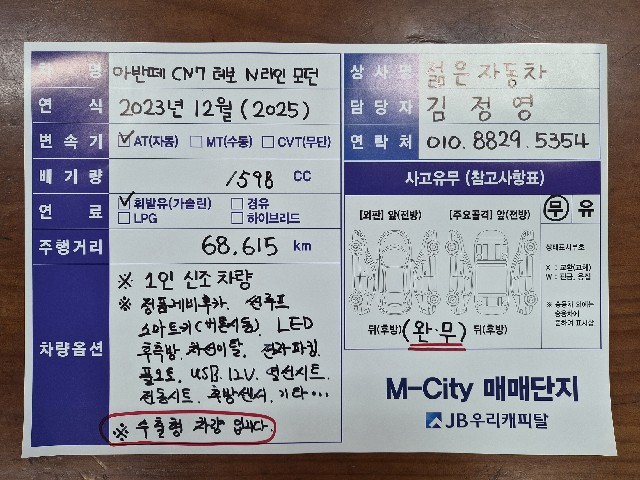 차 명 아반떼 CN7 터보 N라인 모던
연 식 2023년 12월 (2025)
변 속 기 AT(자동) MT(수동) CVT(무단)
배 기 량 1598 CC
연 료 휘발유(가솔린) 경유
LPG 하이브리드
주행거리 68,615 km
차량옵션
※ 1인 신조 차량
※ 정품네비후카. 썬루프
스마트키(버튼시동). LED
후측방. 차선이탈. 전자파킹.
풀오토. USB. 12V. 열선시트.
전동시트. 후방센서. 기타…
※ 수출형 차량 입니다.
상 사 명 젊은자동차
담 당 자 김 정 영
연 락 처 010. 8829. 5354
사고유무 (참고사항표)
[외판] 앞(전방) [주요골격] 앞(전방) 무 유
상태표시부호
X : 교환(교체)
W : 판금, 용접
※ 승용차 외에는
승용차에
준하여 표시함
뒤(후방) (완·무) 뒤(후방)
M-City 매매단지
JB우리캐피탈